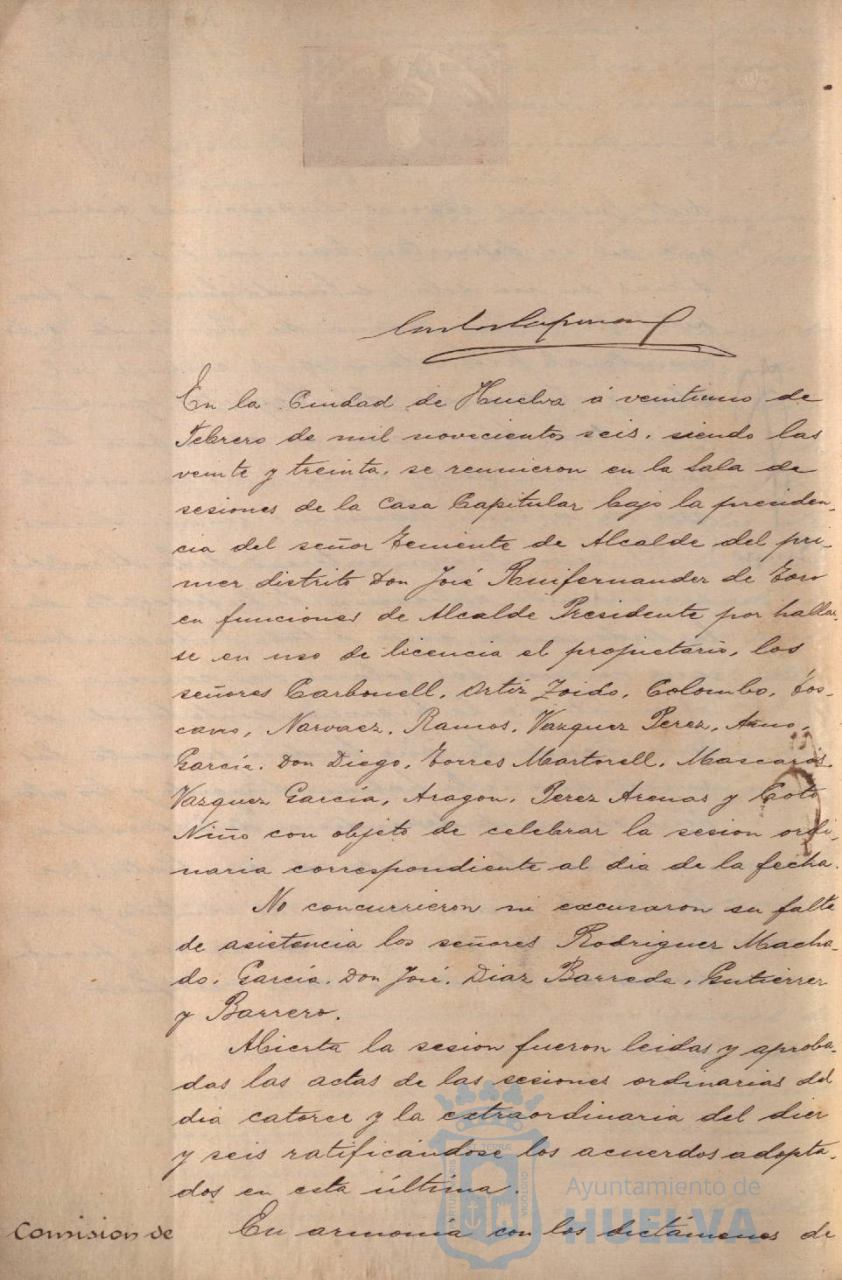 En la Ciudad de Huelva á veintiuno de
Febrero de mil novecientos seis, siendo las
veinte y treinta, se reunieron en la Sala de
sesiones de la Casa Capitular bajo la presiden-
cia del señor Teniente de Alcalde del pri-
mer distrito Don José Ruifernandez de Toro
en funciones de Alcalde Presidente por hallar-
se en uso de licencia el propietario, los
señores Carbonell, Ortiz Zoido, Colombo, Tos-
cano, Narvaez, Ramos, Vazquez Perez,
García, Don Diego, Torres Martorell, Mascarós,
Vazquez García, Aragon, Perez Arenas y Coto
Niño con objeto de celebrar la sesion ordi-
naria correspondiente al dia de la fecha.
No concurrieron ni excusaron su falta
de asistencia los señores Rodriguez Macha-
do, García, Don José, Diaz Barreda, Gutierrez
y Barrero.
Abierta la sesion fueron leidas y aproba-
das las actas de las sesiones ordinarias del
dia catorce y la extraordinaria del diez
y seis ratificándose los acuerdos adopta-
dos en esta última.
Comision de En armonía con los dictámenes de
Ayuntamiento de
HUELVA